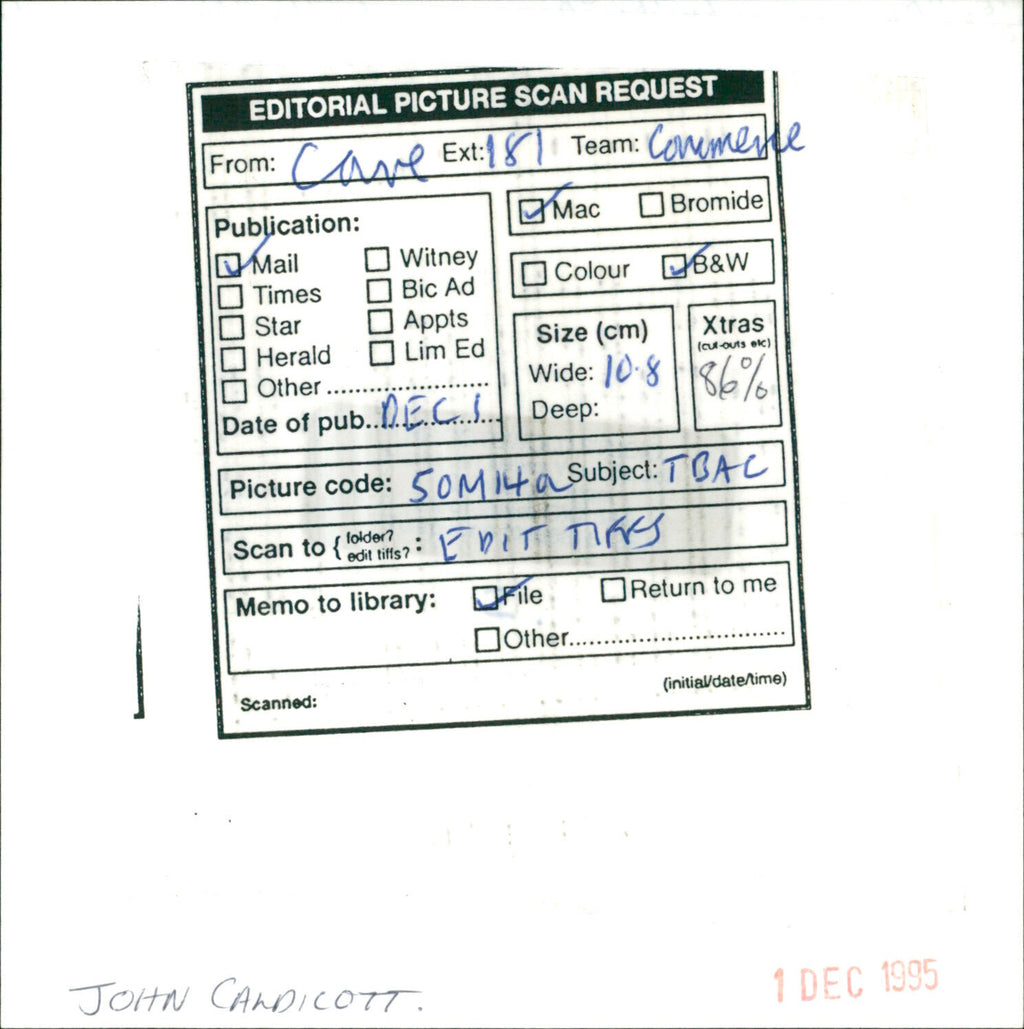 EDITORIAL PICTURE SCAN REQUEST
From: Cave Ext: 181 Team: Commerce
Publication:
Mac Bromide
Mail Witney
Times Bic Ad
Star Appts
Herald Lim Ed
Other ........................
Date of pub.. DEC 1
Colour B&W
Size (cm)
Wide: 10.8
Deep:
Xtras
(cut-outs etc)
86%
Picture code: 50M14a Subject: TBAC
Scan to { folder?
edit tiffs? : EDIT TIFFS
Memo to library: File Return to me
Other................................
Scanned: (initial/date/time)
JOHN CALDICOTT.
1 DEC 1995